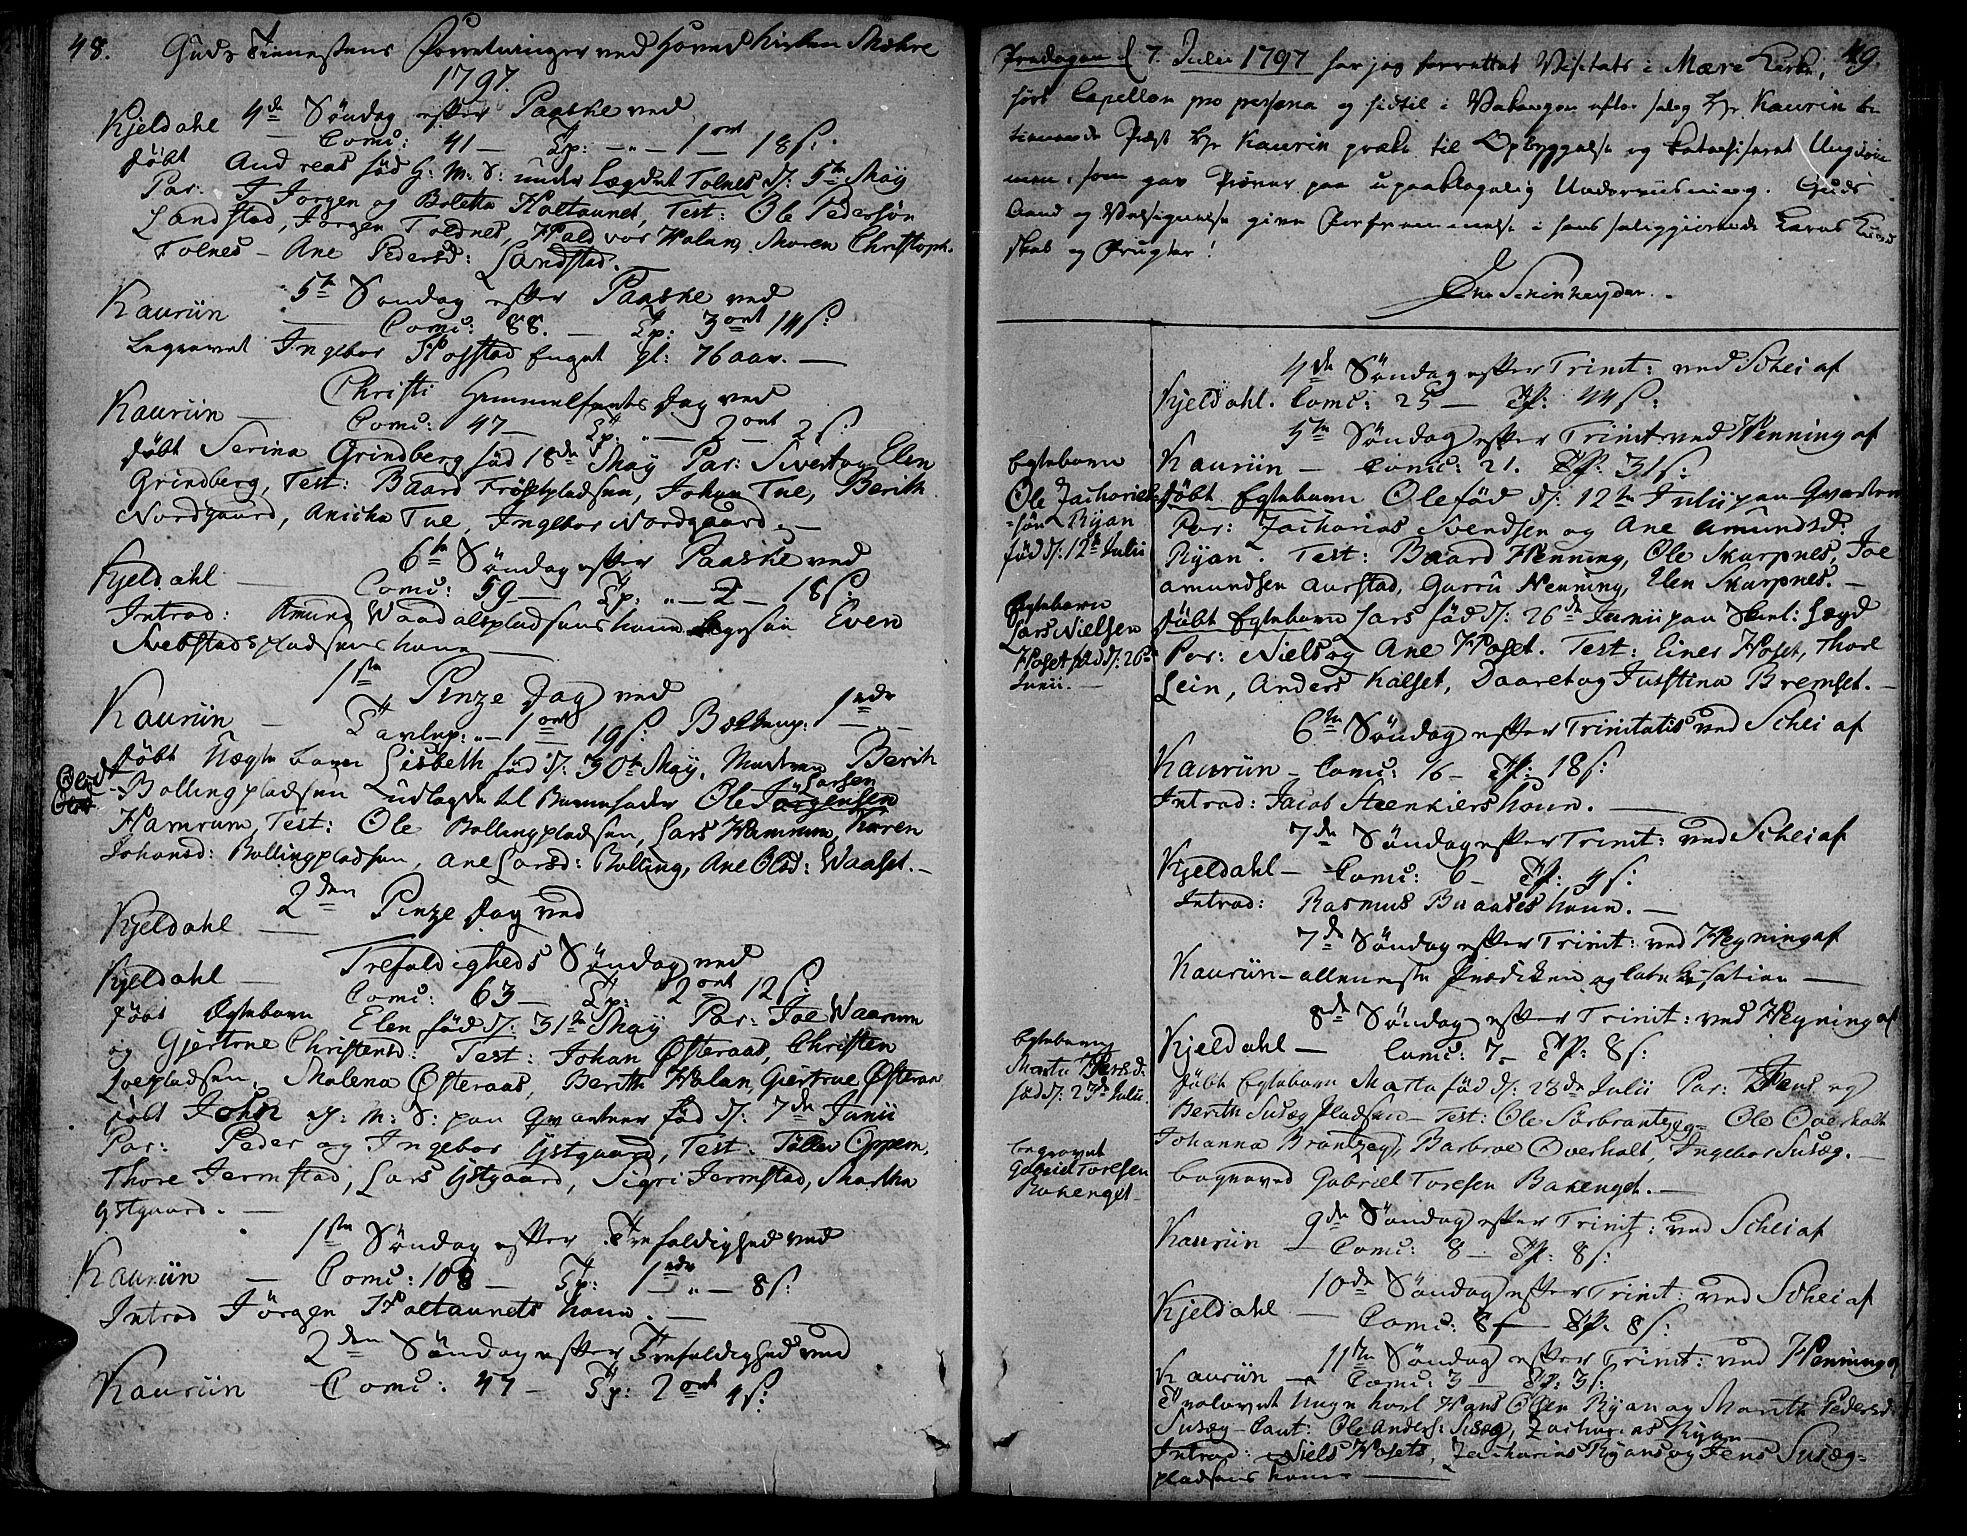 48. Guds Tienestens Forretninger ved Hoved Kirken Mæhre
1797.
4de Søndag efter Paaske ved
Kjeldahl Comu: 41 — Tp: — „ — 1 ort 18 s:
døbt Andreas fød G: M: S: under Lægdet Tolnes d: 5te Maÿ
Par: J Jørgen og Boletta Holtaunet, Test: Ole Pedersøn
Landstad, Jørgen Toldnes, Halvor Halan, Maren Christoph.
Tolnes — Ane Pedersd: Landstad.
5te Søndag efter Paaske ved
Kauriin Comu: 88. — Tp: 3 ort 14 s:
begravet Ingebor Hofstad Enget gl: 76 aar. —
Christi Himmelfarts Dag ved
Kauriin — Comu: 47 — Tp: „ — 2 ort 2 s:
døbt Serina Grindberg fød 18de Maÿ Par: Sivert og Elen
Grindberg, Test: Baard Frøsetpladsen, Johan Tue, Berith
Nordgaard, Anicha Tue, Ingebor Nordgaard. —
6te Søndag efter Paaske ved
Kjeldahl — Comu: 59 — Tp: „ — 2 — 18 s:
Introd: Amund Waadalspladsens kone Even
Svebstadspladsens kone —
1ste Pinze Dag ved
Kauriin — Tavlep: „ — 1 ort 19 s: 1 rdr —
døbt Uægte barn Lisbeth fød d: 30te Maÿ, Moderen Berith
Bollingpladsen udlagde til Barnefader Ole Jørgensen Larsen
Hamrum, Test: Ole Bollingpladsen, Lars Hamrum, Karen
Johansd: Bollingpladsen, Ane Larsd: Bolling, Ane Olsd: Waalset. —
2den Pinze Dag ved
Kjeldahl —
Trefoldigheds Søndag ved
Kjeldahl — Comu: 63 — Tp: 2 ort 12 s:
døbt Ægtebarn Elen fød d: 31te Maÿ Par: Joe Waarum
og Gjertrue Christensd: Test: Johan Østeraas, Christen
Loepladsen, Malena Østeraas, Berith Halan, Giertrue Østeraas
døbt John H: M: S: paa Qvarteer fød d: 7de Junii
Par: Peder og Ingebor Ystgaard, Test: Tølle Oppem,
Thore Jermstad, Lars Ystgaard, Sigri Jermstad, Martha
Ystgaard. —
1ste Søndag efter Trefoldighed ved
Kauriin — Comu: 108 — Tp: 1 rdr „ — 8 s:
Introd Jørgen Holtaunets kone. —
2den Søndag efter Trefoldighed ved
Kauriin Comu: 47 — Tp: 2 ort 4 s:
49.
Fredagen d 7. Julii 1797 har jeg forrettet Visitats i Mære Kirke,
hørt Capellan pro persona og hidtil i Vakanzen efter salig Hr Kaurin be
tienende Præst Hr Kaurin præke til Opbyggelse og katechiseret Ungdom
men, som gav Prøver paa upaaklagelig Underviisning. Guds
Aand og Velsignelse give Forfremmelse i hans saliggiørende Læres Kund
skab og Frugter!
Schønheyder.
4de Søndag efter Trinit: ved Schei af
Kjeldahl. Comu: 25 — Tp: 44 s:
5te Søndag efter Trinit: ved Henning af
Kauriin — Comu: 21. Tp: 31 s:
Egtebarn
Ole Zacharias
søn Ryan
fød d: 12te Julii
døbt Egtebarn Ole fød d: 12te Julii paa Qvarteer
Par: Zacharias Svendsen og Ane Amundsd:
Ryan Test: Baard Henning, Ole Skarpnes, Joe
Amundsen Aurstad, Guru Henning, Elen Skarpnes. —
Ægtebarn
Lars Nielsen
Hoset fød d: 26de
Junii. —
døbt Egtebarn Lars fød d: 26de Junii paa Lægd
Par: Niels og Ane Hoset. Test: Einer Hoset, Thore
Lein, Anders Kalset, Daaret og Justtina Bremset. —
6te Søndag efter Trinitatis ved Schei af
Kauriin — Comu: 16 — Tp: 18 s:
Introd: Jacob Steenkiers kone. —
7de Søndag efter Trinit: ved Schei af
Kjeldahl — Comu: 6 — Tp: 4 s:
Introd: Rasmus Buaases kone. —
7de Søndag efter Trinit: ved Hegning af
Kauriin — alleneste Prædiken og Catechisation —
8de Søndag efter Trinit: ved Hegning af
Kjeldahl — Comu: 7 — Tp: 8 s:
Egtebarn
Marta Jensd:
fød d: 23de Julii.
døbt Egtebarn Marta fød d: 23de Julii Par: Jens og
Berith Susæg Pladsen — Test: Ole Sørbrantzeg — Ole Overholt
Johanna Brantzeg, Barbroe Overholt, Ingebor Susæg. —
begravet
Gabriel Toresen
Bakenget —
begraved Gabriel Toresen Bakenget. —
9de Søndag efter Trinit: ved Schei af
Kauriin — Comu: 8 — Tp: 8 s:
10de Søndag efter Trinit: ved Schei af
Kjeldahl — Comu: 8 — Tp: 8 s:
11te Søndag efter Trinit: ved Henning af
Kauriin — Comu: 3 — Tp: 3 s:
Trolovet Unge karl Hans Olsen Ryan og Marith Pedersd:
Susæg — Caut: Ole Anders: Susæg, Zacharias Ryan
Introd: Niels Hosets, Zacharias Ryans og Jens Susæg-
pladsens kone —